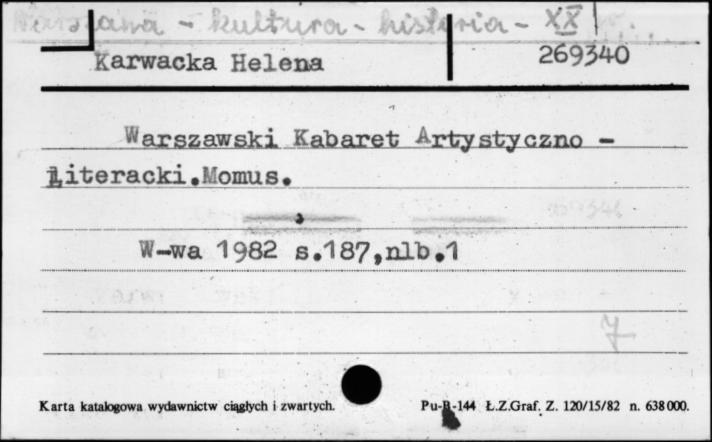 Warszawa - kultura - historia - XX w.
Karwacka Helena
269340
Warszawski Kabaret Artystyczno -
Literacki.Momus.
W-wa 1982 s.187,nlb.1
7
Karta katalogowa wydawnictw ciągłych i zwartych.
Pu-B-144 Ł.Z.Graf. Z. 120/15/82 n. 638000.